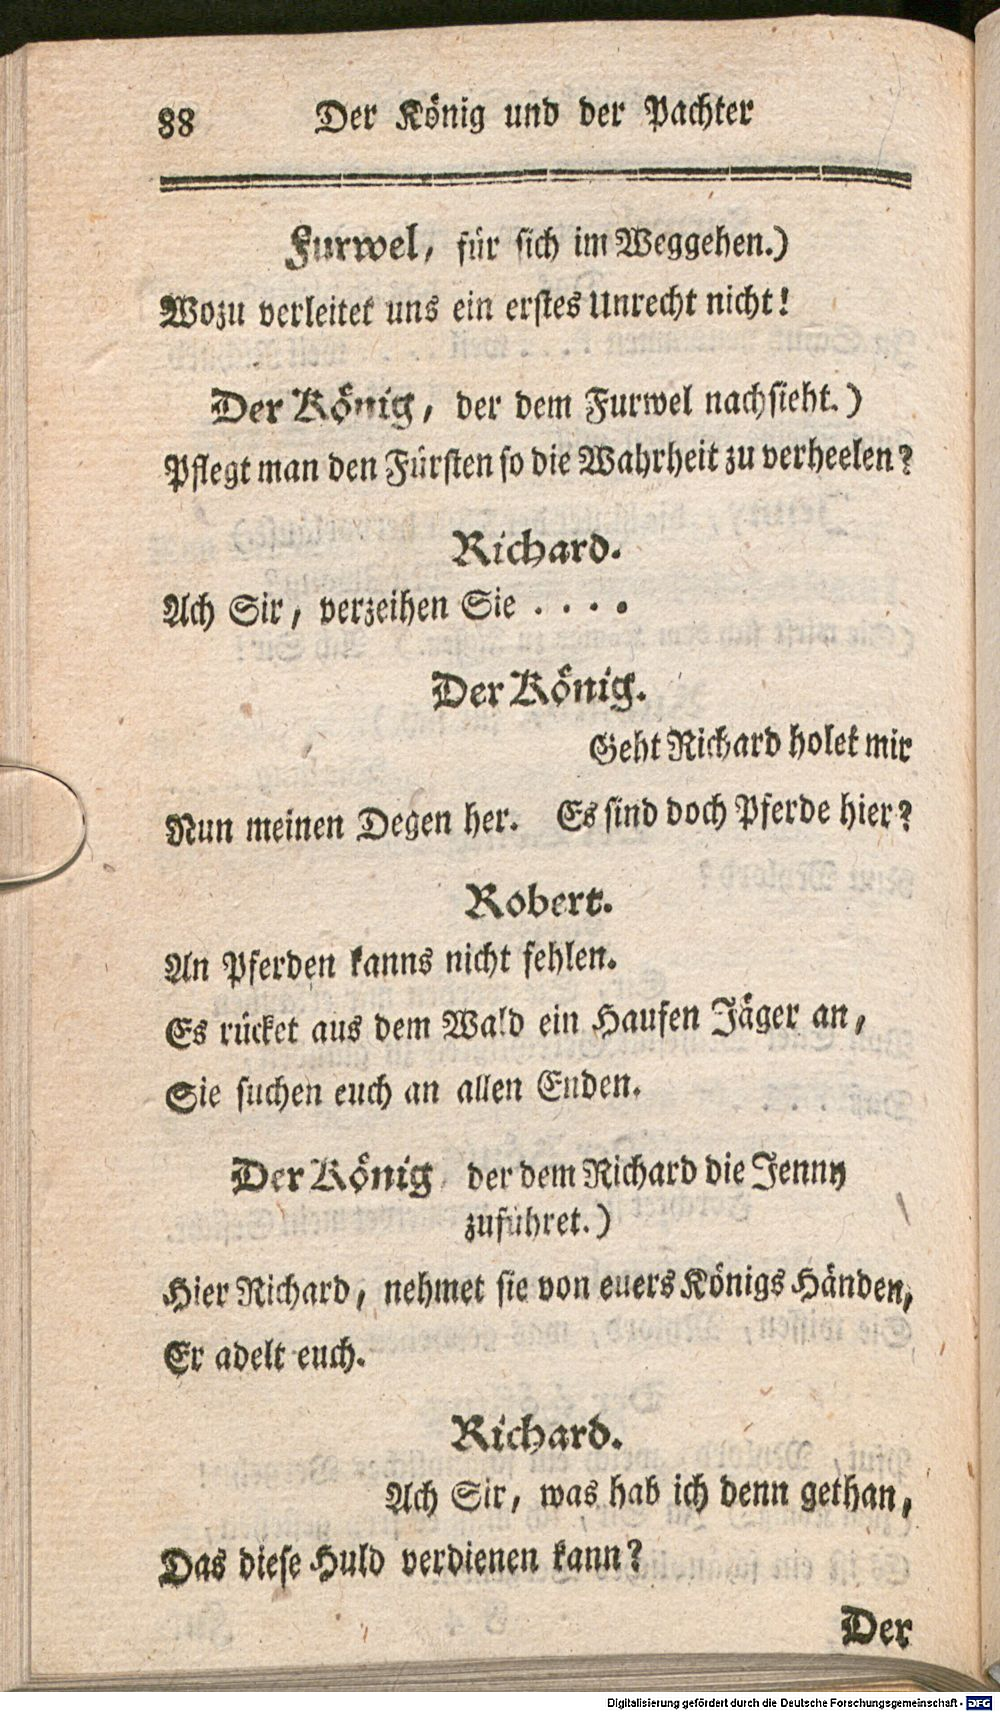 88 Der König und der Pachter
Furwel, für sich im Weggehen.)
Wozu verleitet uns ein erstes Unrecht nicht!
Der König, der dem Furwel nachsieht.)
Pflegt man den Fürsten so die Wahrheit zu verheelen?
Richard.
Ach Sir, verzeihen Sie . . . .
Der König.
Geht Richard holet mir
Nun meinen Degen her. Es sind doch Pferde hier?
Robert.
An Pferden kanns nicht fehlen.
Es rücket aus dem Wald ein Haufen Jäger an,
Sie suchen euch an allen Enden.
Der König der dem Richard die Jenny
zuführet.)
Hier Richard, nehmet sie von euers Königs Händen,
Er adelt euch.
Richard.
Ach Sir, was hab ich denn gethan,
Das diese Huld verdienen kann?
Der
Digitalisierung gefördert durch die Deutsche Forschungsgemeinschaft - DFG